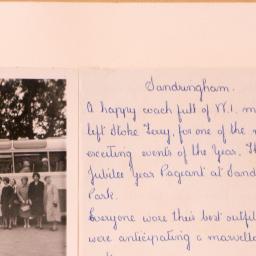 Sandringham.
A happy coach full of W.I. m
left Stoke Ferry, for one of the m
exciting events of the Year. Th
Jubilee Year Pageant at Sand
Park.
Everyone wore their best outf
were anticipating a marvell